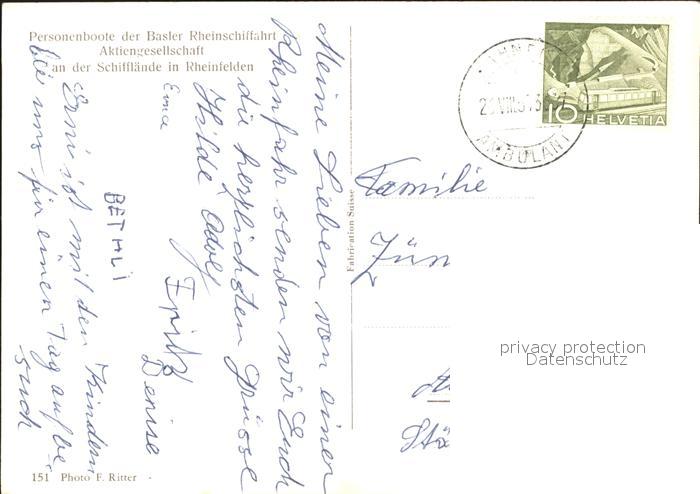 Personenboote der Basler Rheinschiffahrt
Aktiengesellschaft
an der Schifflände in Rheinfelden
Meine Lieben von einer
Rheinfahrt senden wir Euch
die herzlichsten Grüsse
Hilde Adolf
Erna
Fritz
Denise
BETHLI
Erni ist mit den Kindern
bei uns für einen Tag auf Be-
such
151 Photo F. Ritter
Fabrication Suisse
AMBULANT
10 HELVETIA
Familie
Zün
privacy protection
Datenschutz
Stä